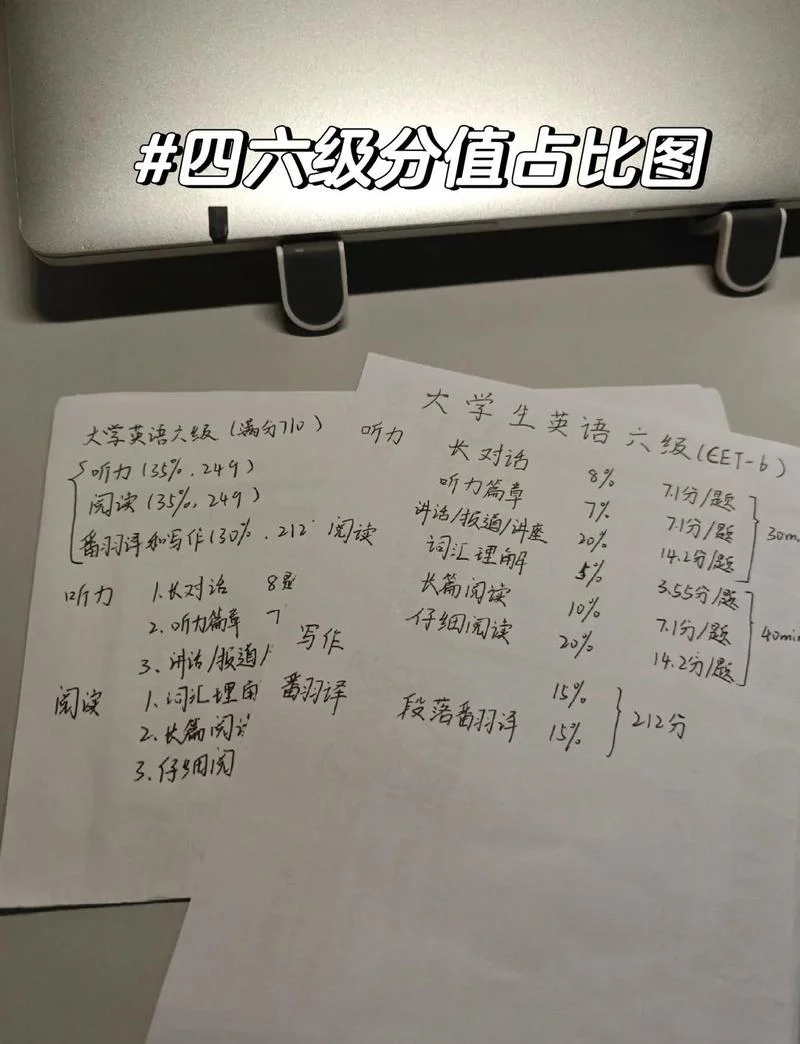 #四六级分值占比图
大学英语六级（满分710）
听力（35%，249）
阅读（35%，249）
翻译和写作（30%，212
听力 1.长对话 8
2.听力篇章 7
3.讲话/报道/
阅读 1.词汇理
2.长篇阅
3.仔细阅
大学生英语六级（CET-6）
听力 长对话 8% 7.1分/题
听力篇章 7% 7.1分/题
讲话/报道/讲座 20% 14.2分/题
30m
阅读 词汇理解 5% 3.55分/题
长篇阅读 10% 7.1分/题
仔细阅读 20% 14.2分/题
40min
写作 15%
翻译 段落翻译 15%
212分